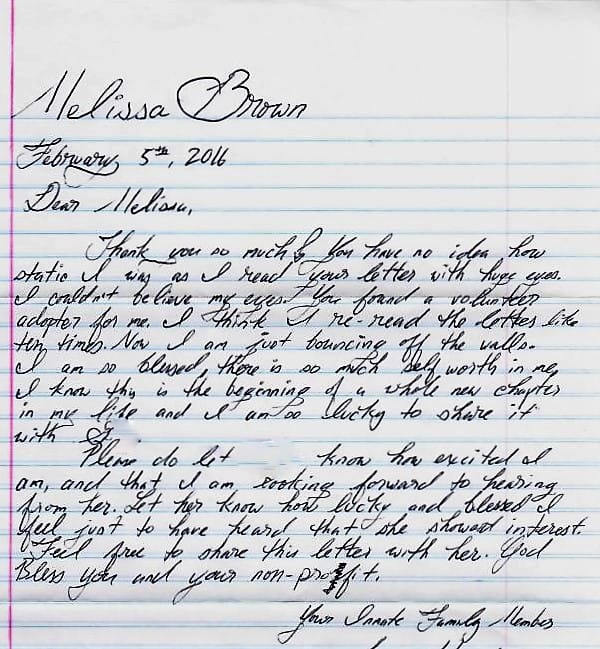 Melissa Brown
February 5th, 2016
Dear Melissa,
Thank you so much! You have no idea how
static I was as I read your letter with huge eyes.
I couldn't believe my eyes! You found a volunteer
adopter for me. I think I re-read the letter like
ten times. Now I am just bouncing off the walls.
I am so blessed, there is so much self worth in me,
I know this is the beginning of a whole new chapter
in my life and I am so lucky to share it
with
Please do let know how excited I
am, and that I am looking forward to hearing
from her. Let her know how lucky and blessed I
feel just to have heard that she showed interest.
Feel free to share this letter with her. God
Bless you and your non-profit.
Your Inmate Family Member